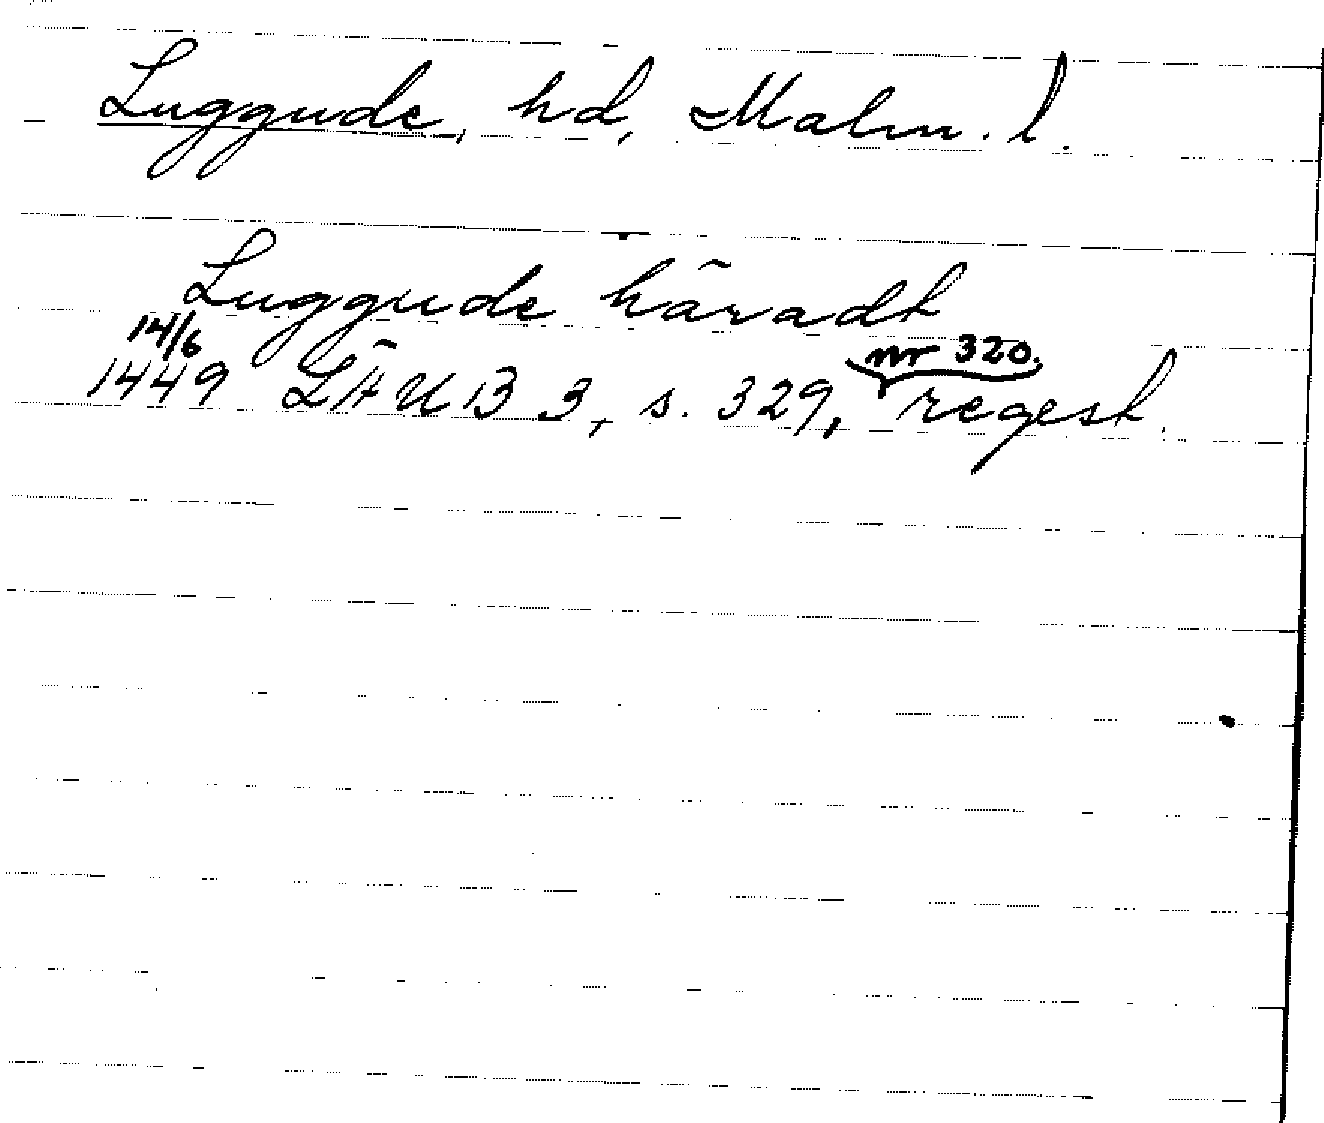 Luggude, hd, Malm. l.
Luggude häradt
14/6 nr 320.
1449 LÄUB 3, s. 329, regest.